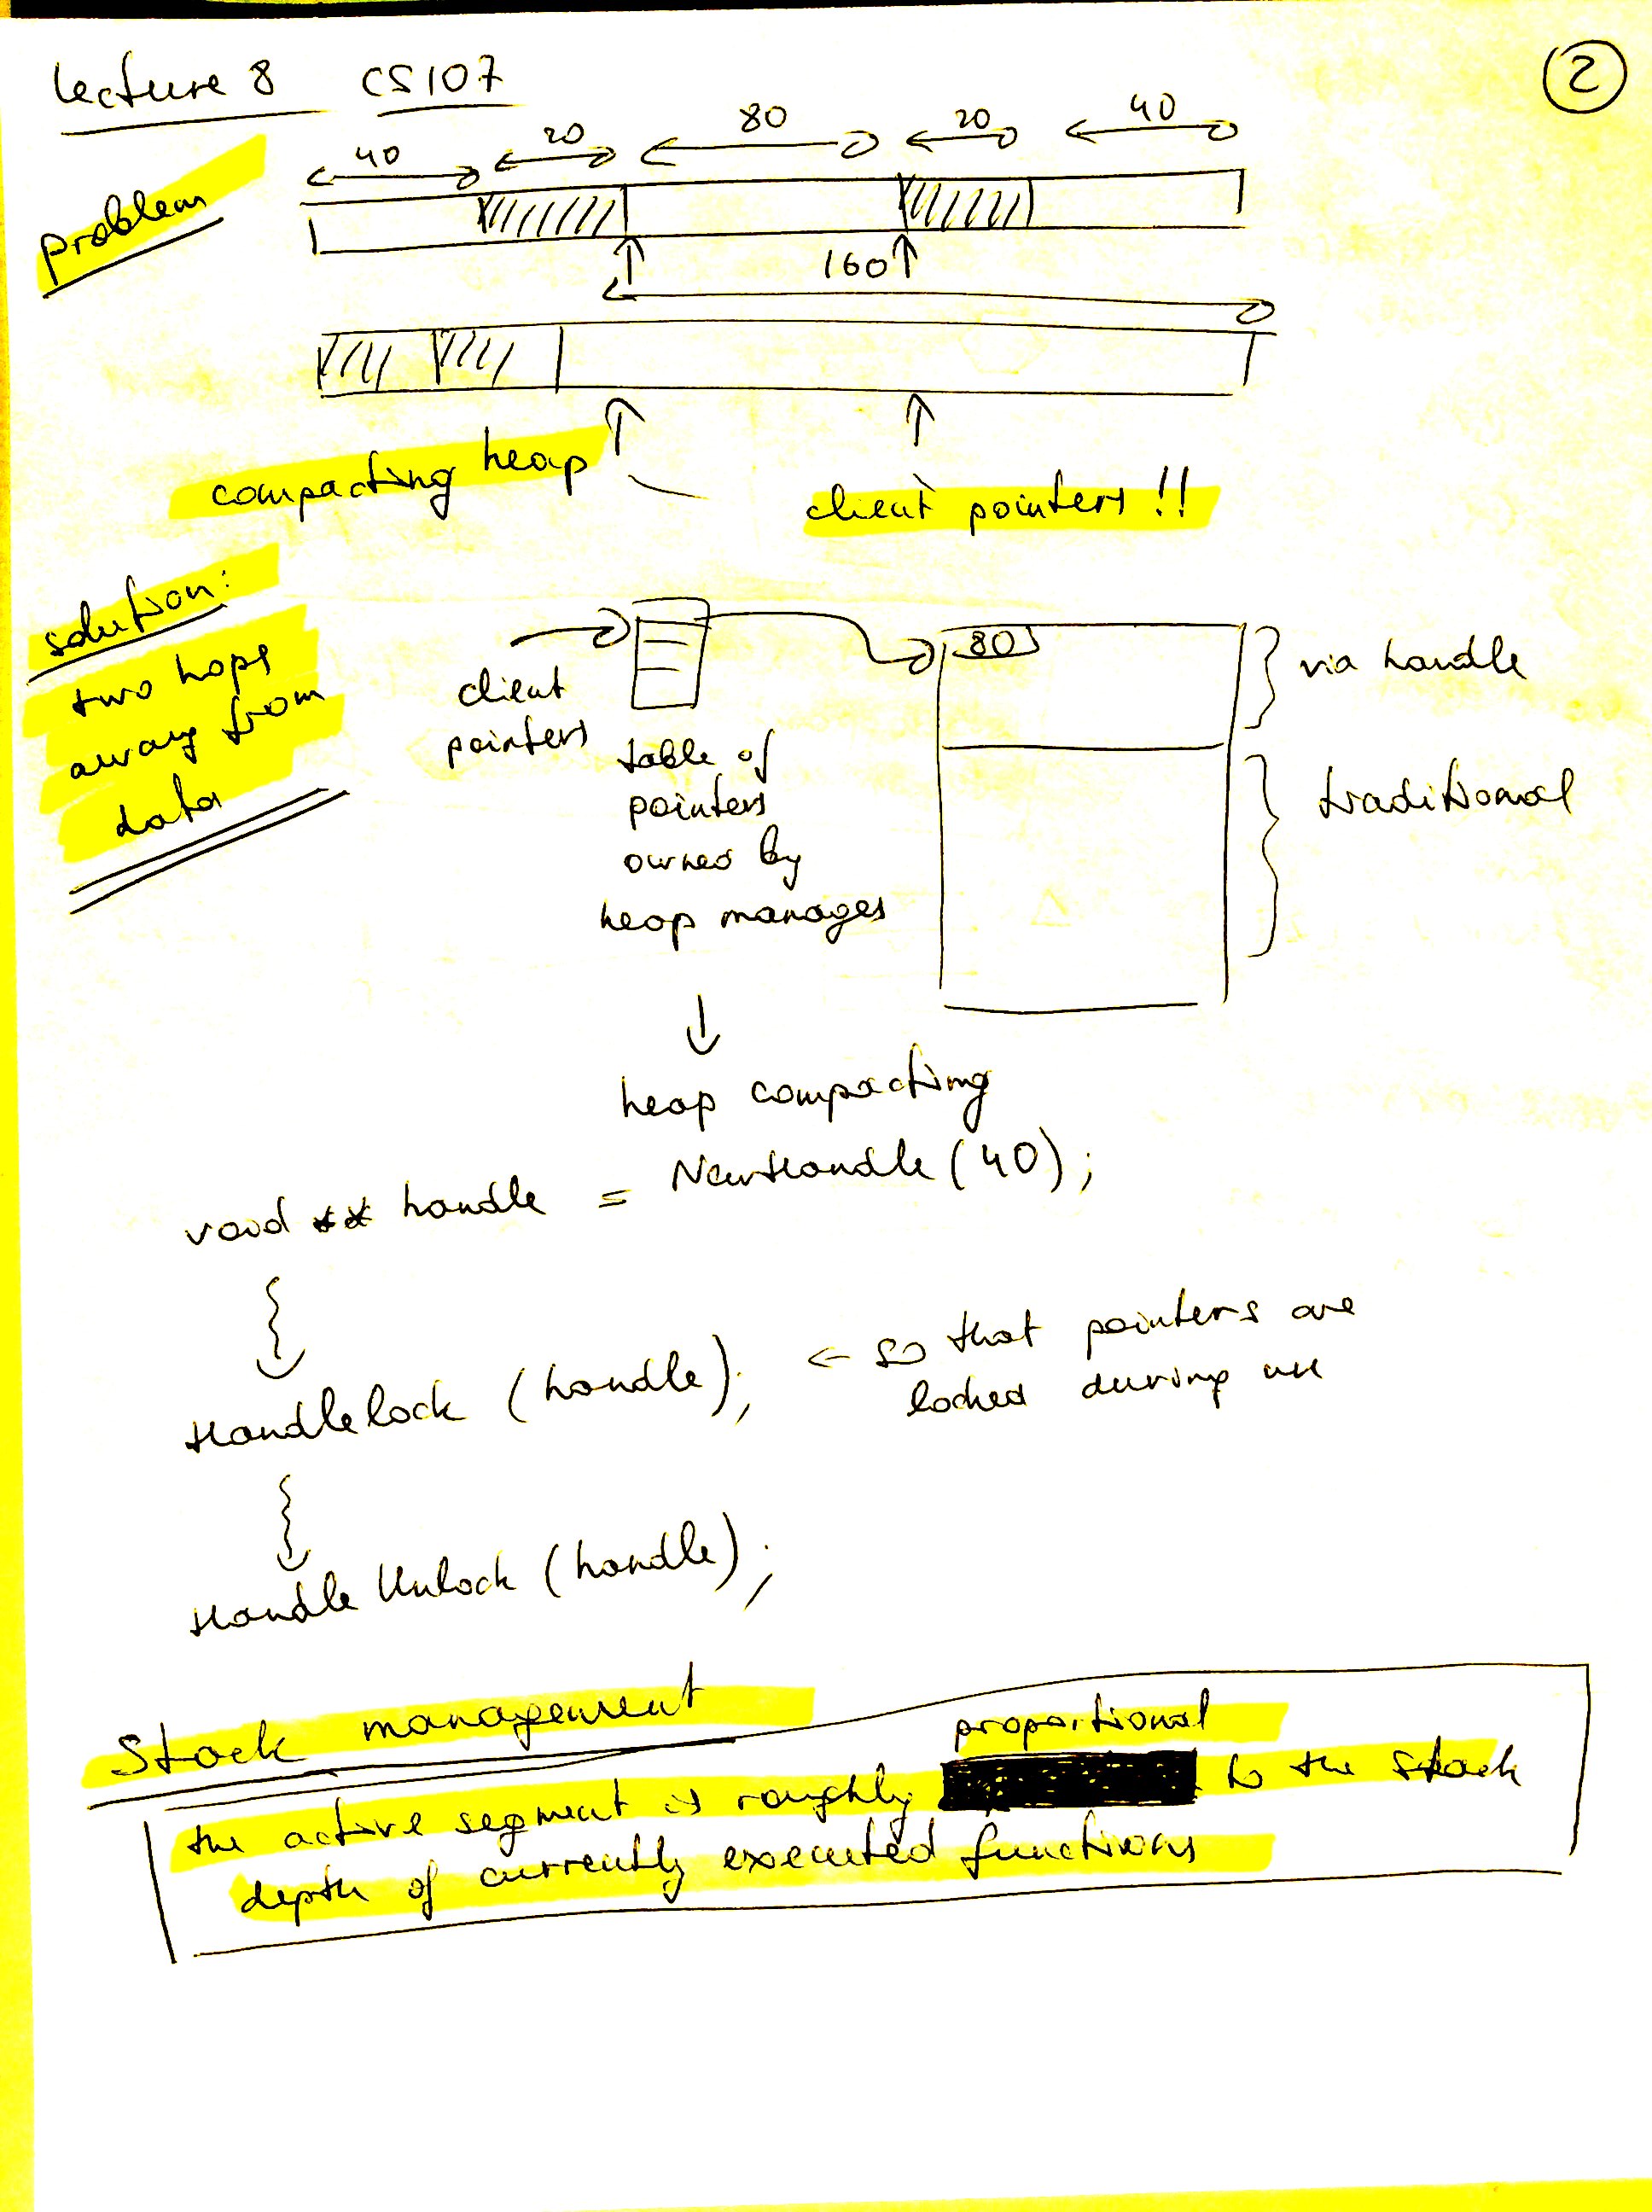 lecture 8 CS107
2
problem
40 20 80 20 40
160
compacting heap
client pointers !!
solution:
two hops
away from
data
client
pointers
table of
pointers
owned by
heap manages
80
via handle
traditional
heap compacting
void ** handle = NewHandle (40);
HandleLock (handle); ← so that pointers are
locked during use
HandleUnlock (handle);
Stack management
proportional
the active segment is roughly to the stack
depth of currently executed functions